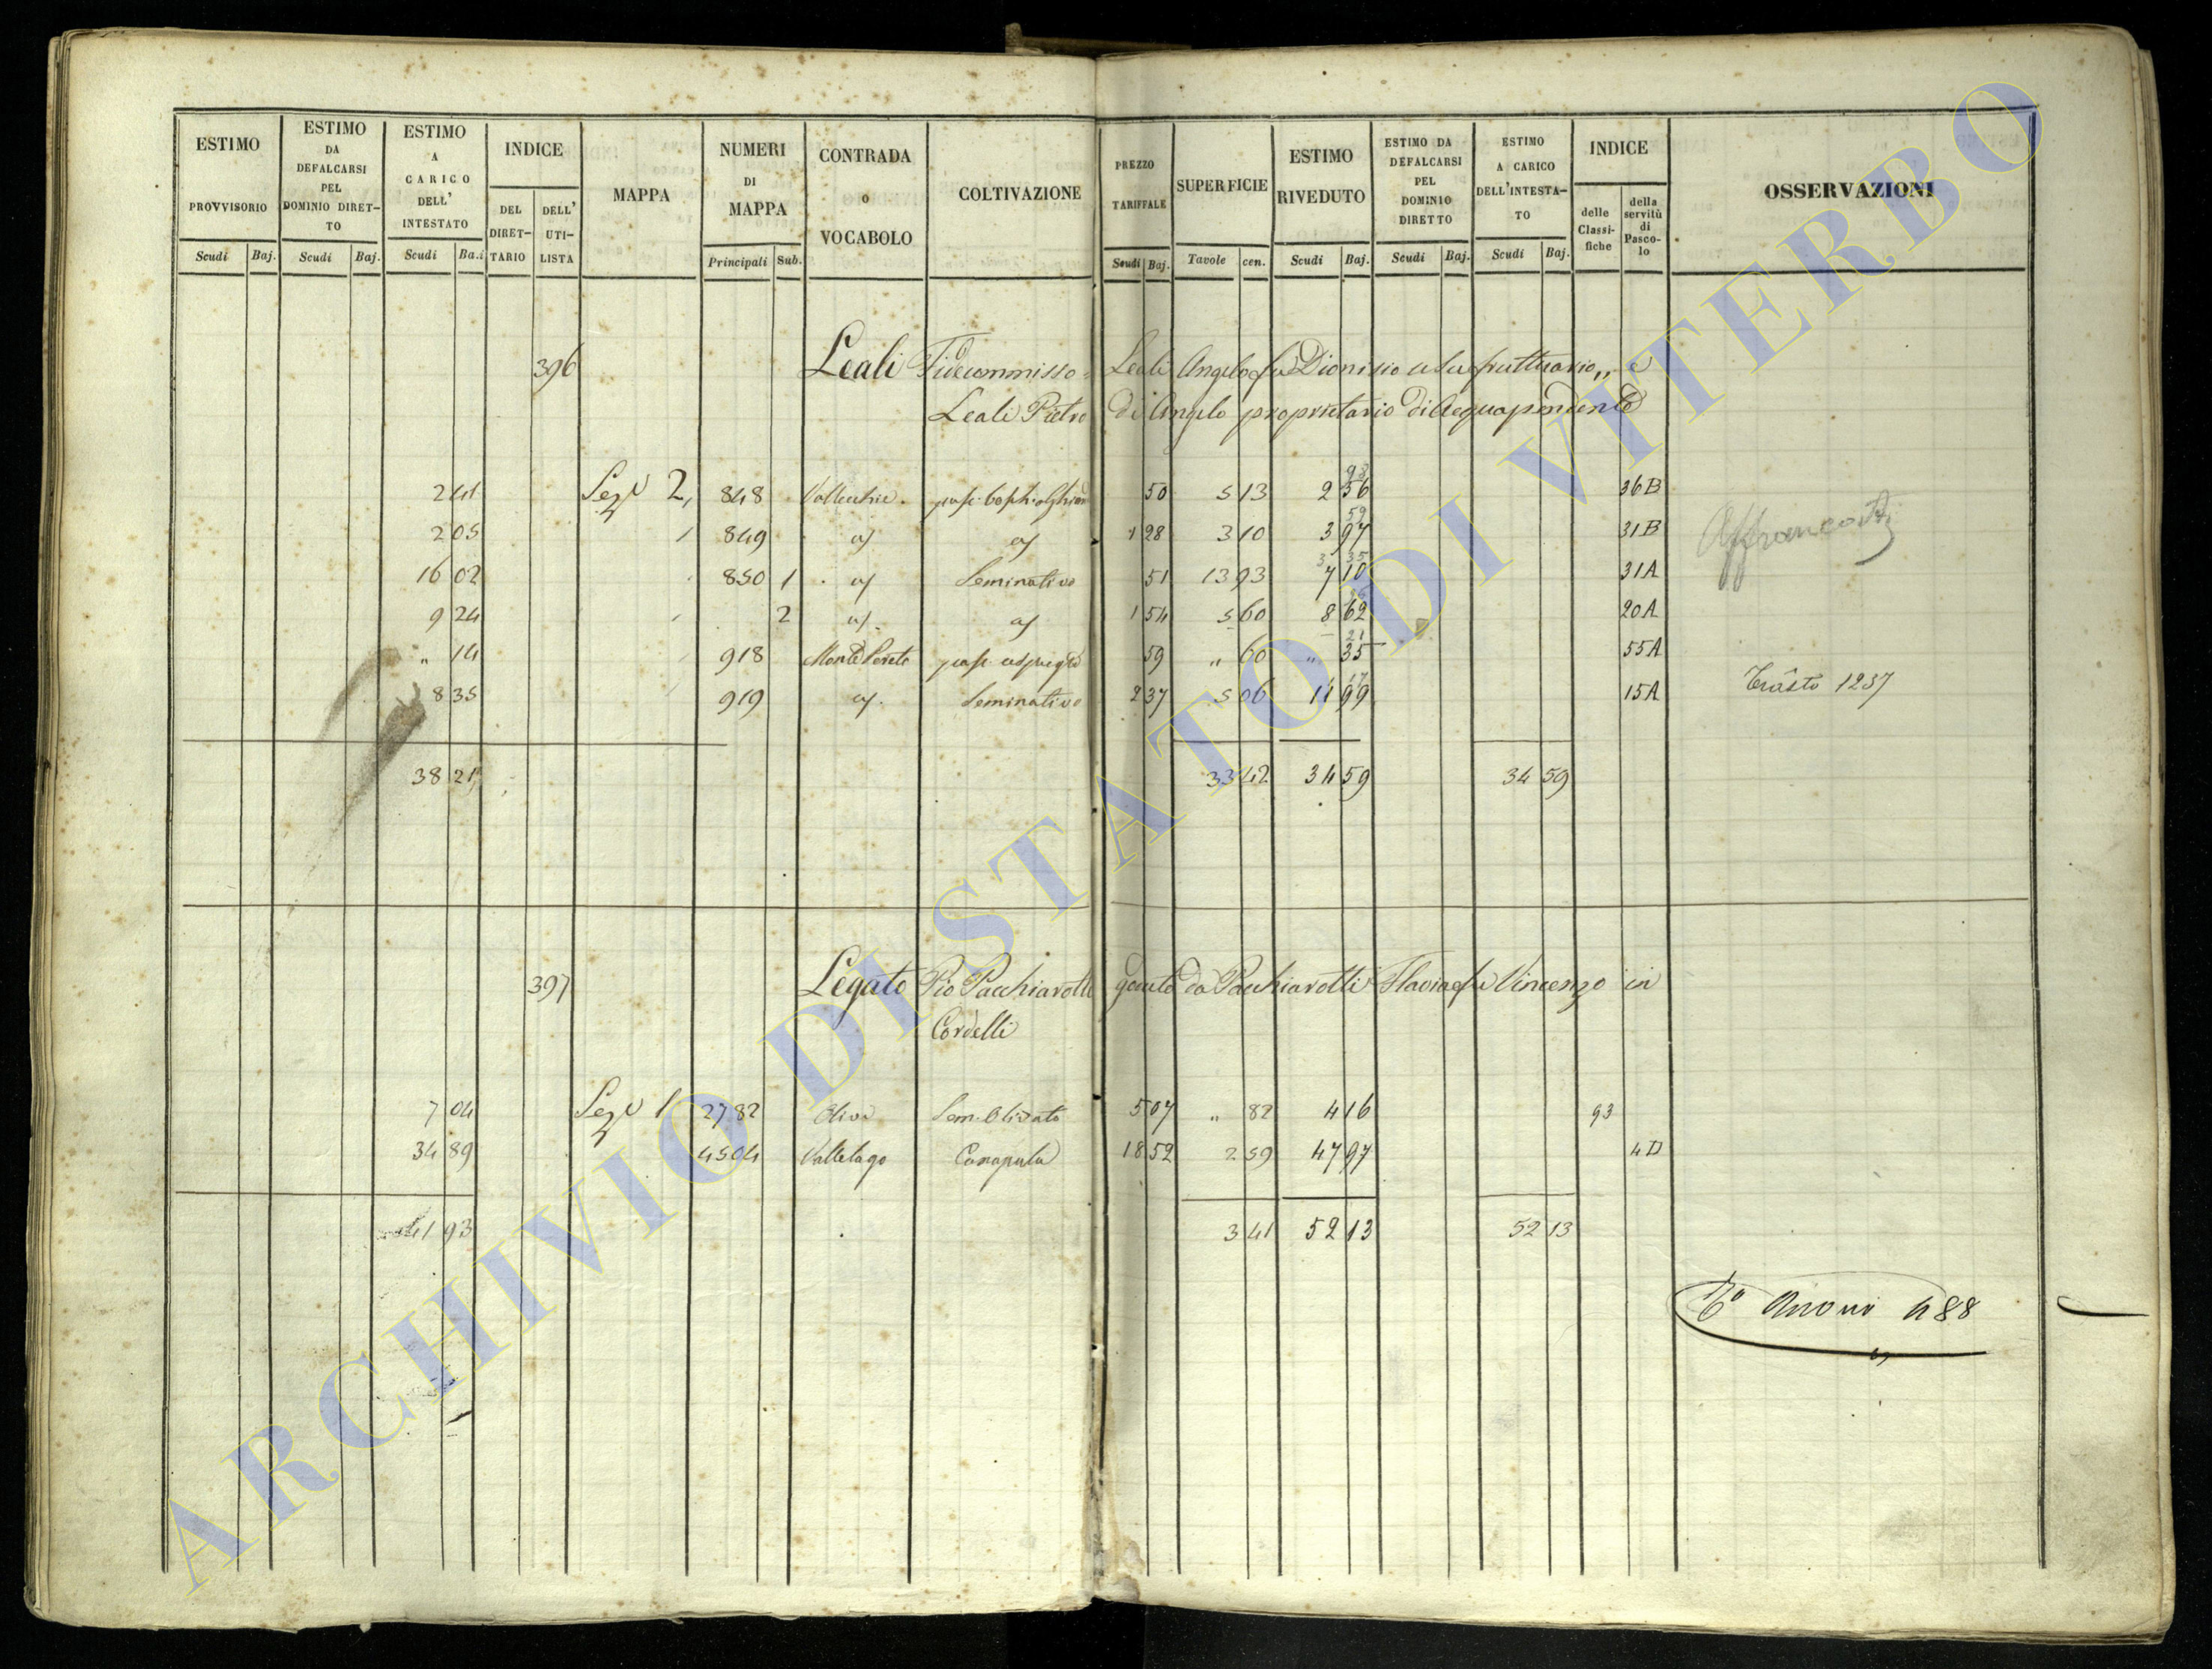 ESTIMO PROVVISORIO Scudi Baj.
ESTIMO DA DEFALCARSI PEL DOMINIO DIRET-TO Scudi Baj.
ESTIMO A CARICO DELL' INTESTATO Scudi Ba.i
INDICE DEL DIRET-TARIO DELL' UTI-LISTA
MAPPA
NUMERI DI MAPPA Principali Sub.
CONTRADA o VOCABOLO
COLTIVAZIONE
PREZZO TARIFFALE Scudi Baj.
SUPERFICIE Tavole cen.
ESTIMO RIVEDUTO Scudi Baj.
ESTIMO DA DEFALCARSI PEL DOMINIO DIRETTO Scudi Baj.
ESTIMO A CARICO DELL'INTESTA-TO Scudi Baj.
INDICE delle Classi-fiche della servitù di Pasco-lo
OSSERVAZIONI
396 Leali Fidecommisso = Leali Angelo fu Dionisio usufruttuario,, e
Leali Pietro di Angelo proprietario di Acquapendente
2 41 Sez. 2, 848 Vallecchie 50 5 13 2 56 98 36B
2 05 849 1 28 3 10 3 97 59 31B Affrancata
16 02 850 1 Seminativo 51 13 93 7 10 3 35 31A
9 24 2 1 54 5 60 8 62 20A
" 14 918 59 " 60 " 35 21 55A
8 35 919 Seminativo 2 37 5 06 11 99 17 15A Trasto 1237
38 21 33 42 34 59 34 59
397 Legato Pio Pacchiarotti goduto da Pacchiarotti Flavia fu Vincenzo in
Cordelli
7 04 Sez. 1 2782 Olivo Sem. Olivato 5 07 " 82 4 16 93
34 89 4504 Vallelago Canapula 18 52 2 59 47 97 4D
41 93 3 41 52 13 52 13
488
ARCHIVIO DI STATO DI VITERBO